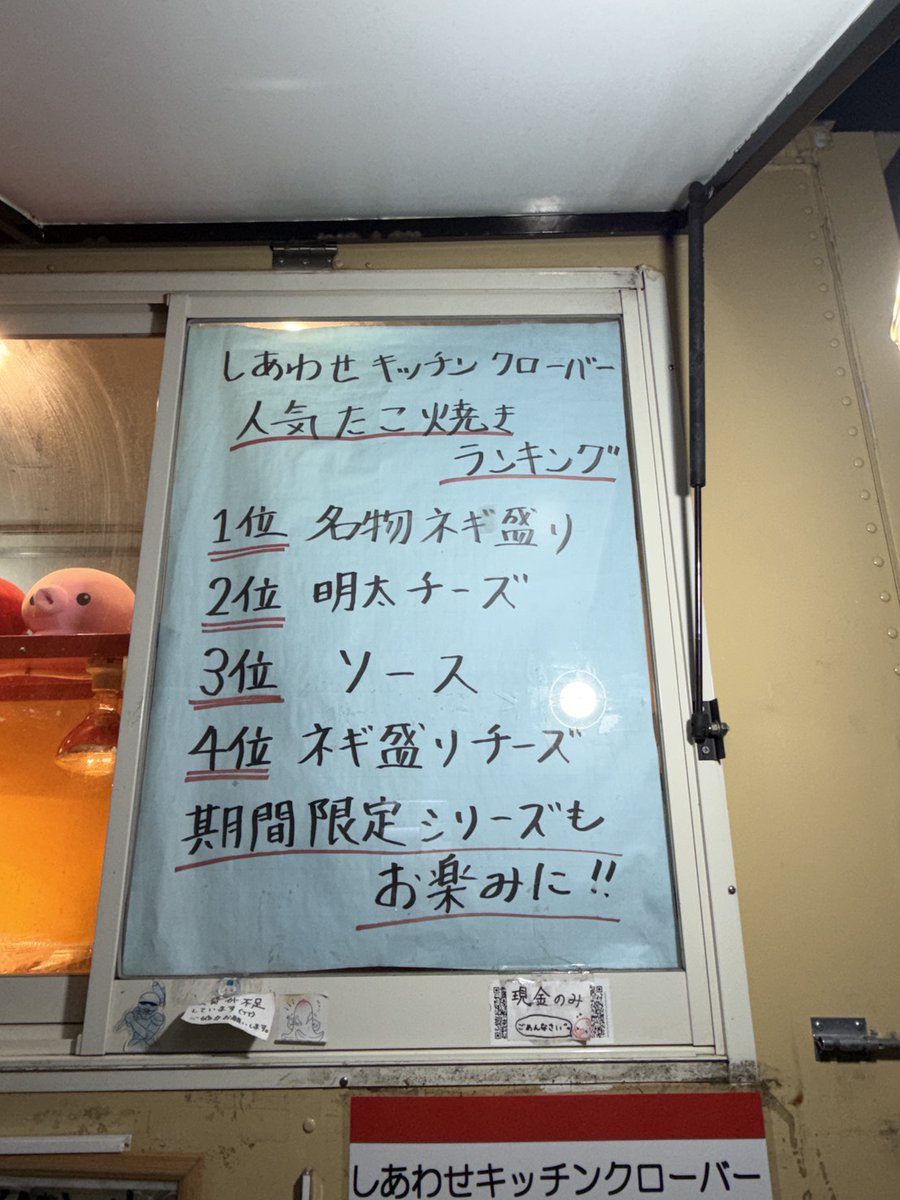 しあわせキッチンクローバー
人気たこ焼き
ランキング
1位 名物ネギ盛り
2位 明太チーズ
3位 ソース
4位 ネギ盛りチーズ
期間限定シリーズも
お楽しみに!!
不足
しています
お願いします。
現金のみ
ごめんなさい
しあわせキッチンクローバー